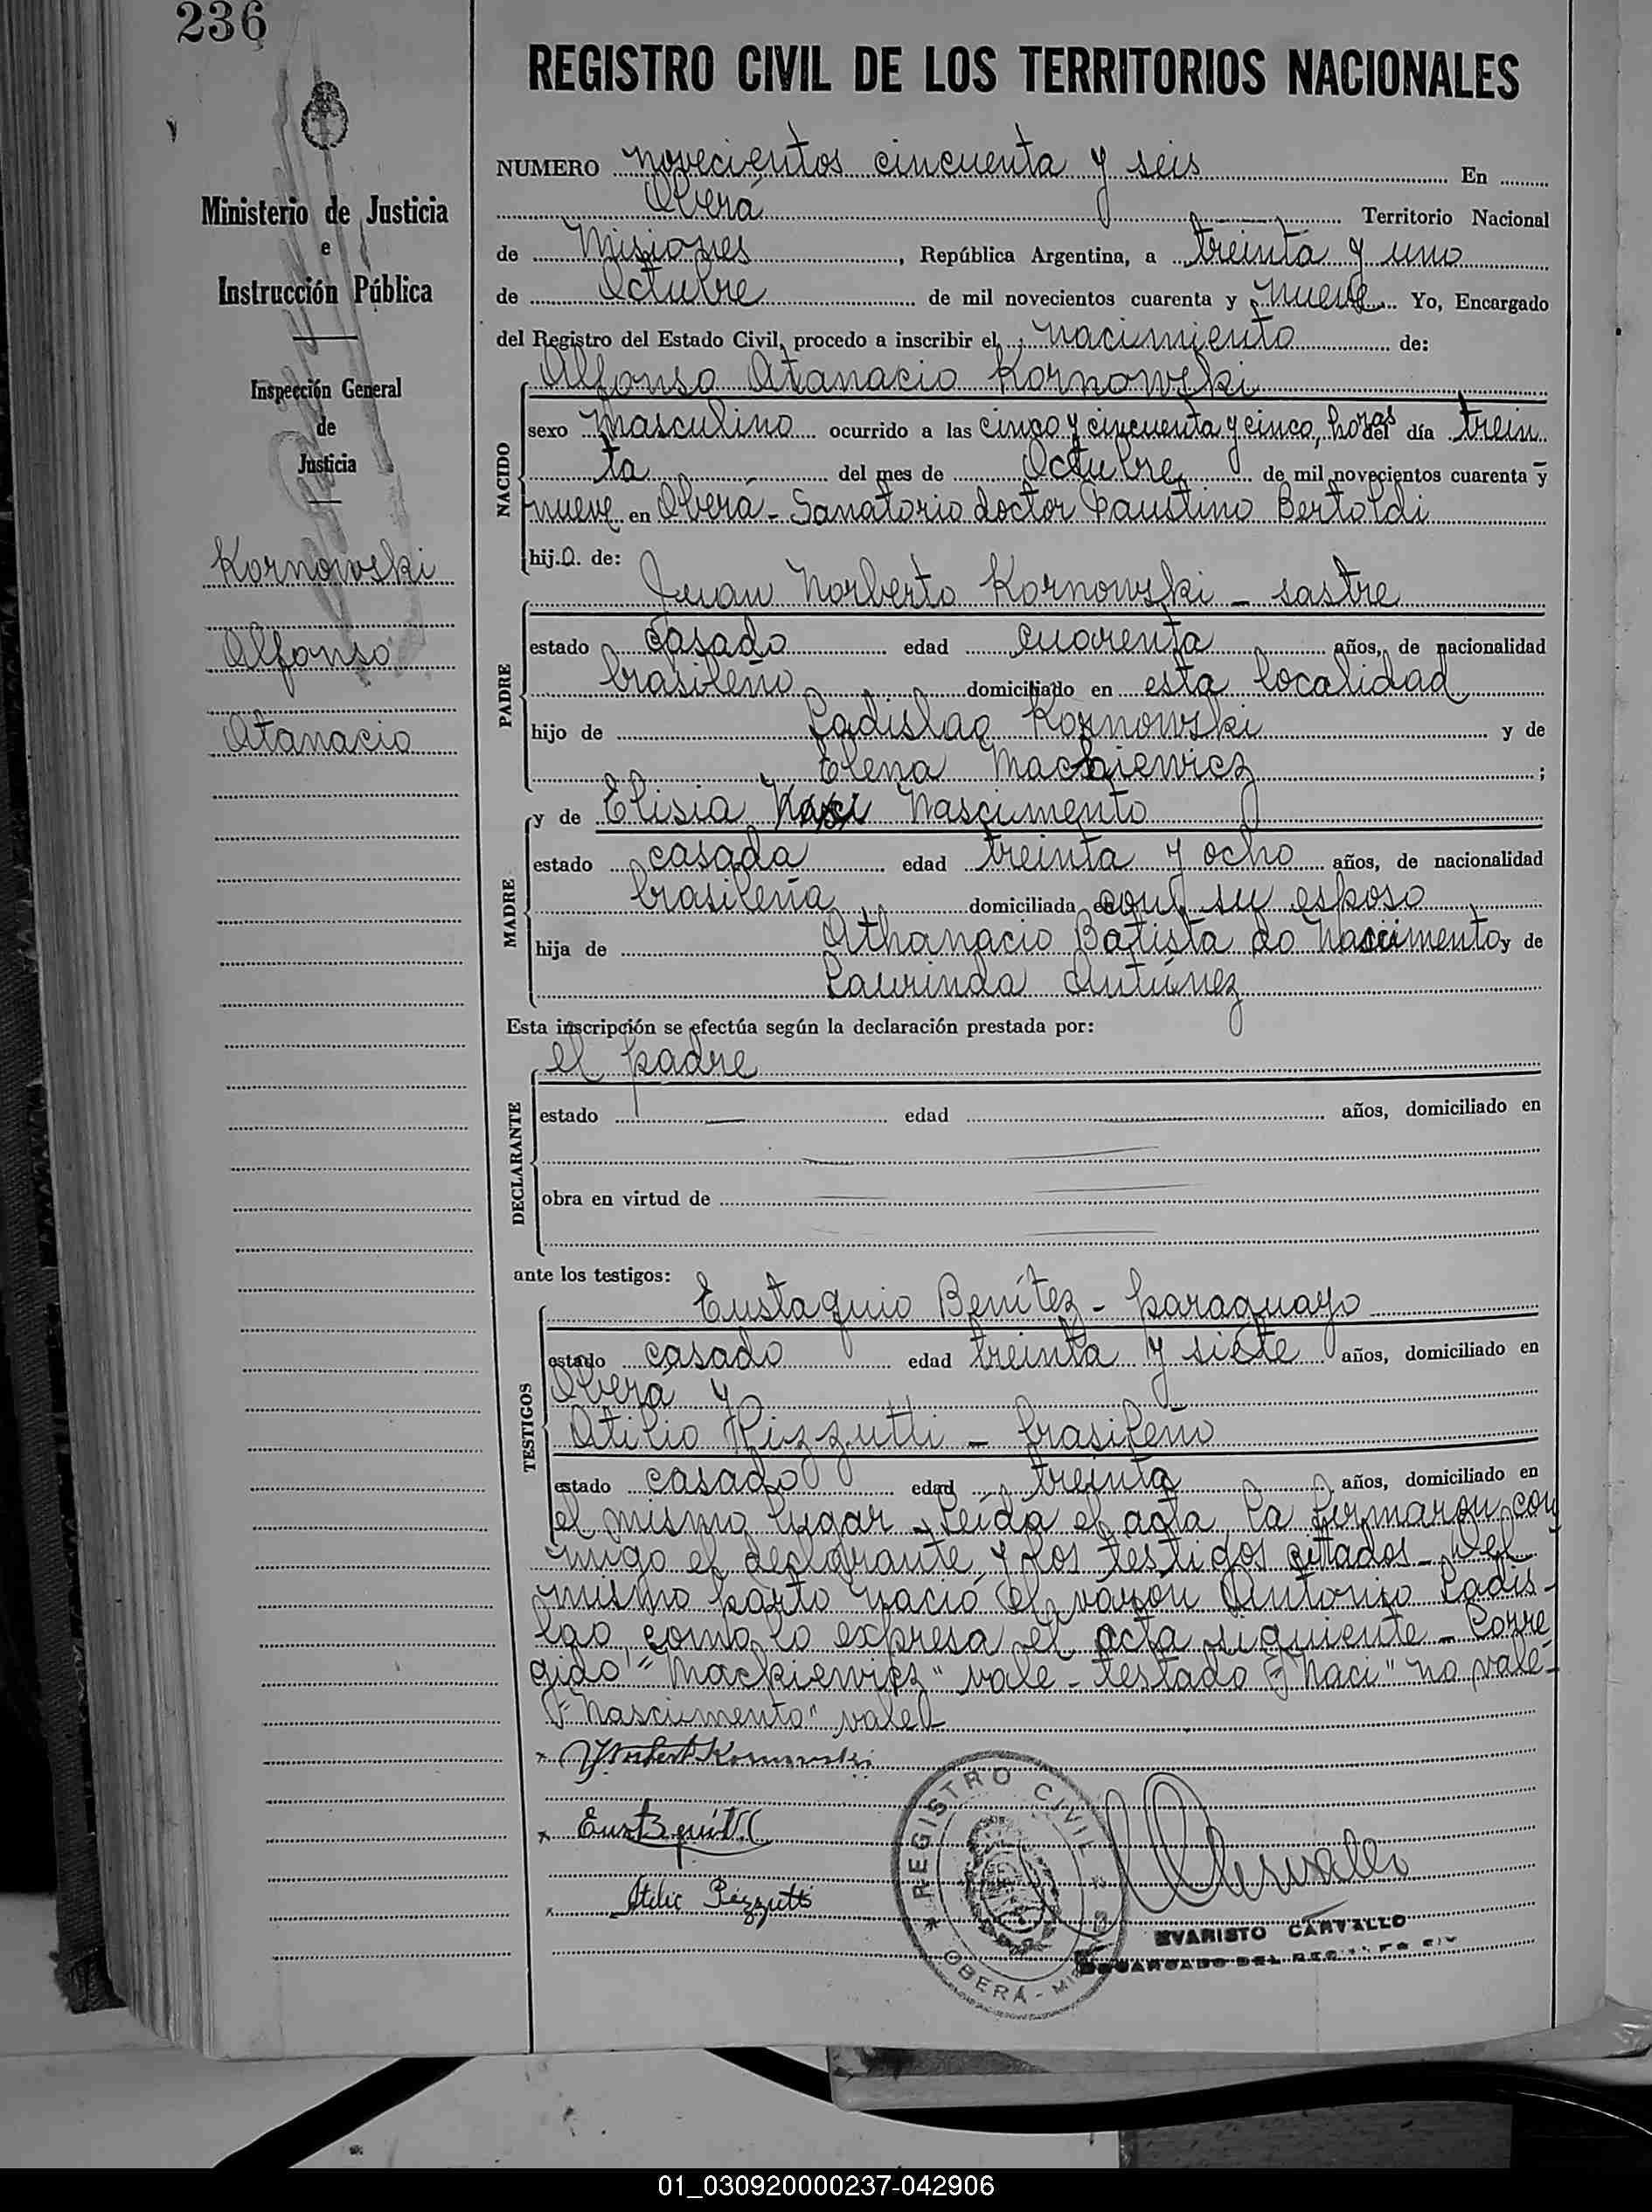 236
REGISTRO CIVIL DE LOS TERRITORIOS NACIONALES
Ministerio de Justicia
e
Instrucción Pública
Inspección General
de
Justicia
Kornowski
Alfonso
Atanacio
NUMERO novecientos cincuenta y seis En
Oberá Territorio Nacional
de Misiones, República Argentina, a treinta y uno
de Octubre de mil novecientos cuarenta y nueve Yo, Encargado
del Registro del Estado Civil, procedo a inscribir el nacimiento de:
Alfonso Atanacio Kornowski
NACIDO
sexo Masculino ocurrido a las cinco y cincuenta y cinco, horas del día trein
ta del mes de Octubre de mil novecientos cuarenta y
nueve en Oberá - Sanatorio doctor Faustino Bertoldi
hij.o. de:
PADRE
Juan Norberto Kornowski - sastre
estado casado edad cuarenta años, de nacionalidad
brasileño domiciliado en esta localidad
hijo de Ladislao Kornowski y de
Elena Mackiewicz ;
MADRE
y de Elisia Naci Nascimento
estado casada edad treinta y ocho años, de nacionalidad
brasileña domiciliada con su esposo
hija de Athanacio Batista do Nascimento y de
Laurinda Antúnez
Esta inscripción se efectúa según la declaración prestada por:
DECLARANTE
el padre
estado edad años, domiciliado en
obra en virtud de
ante los testigos:
TESTIGOS
Eustaquio Benítez - paraguayo
estado casado edad treinta y siete años, domiciliado en
Oberá y
Atilio Pizzutti - brasileño
estado casado edad treinta años, domiciliado en
el mismo lugar - Leída el acta, la firmaron con
migo el declarante y los testigos citados - Del
mismo parto nació el varón Antonio Ladis-
lao, como lo expresa el acta siguiente - Corre
gido "Mackiewicz" vale - testado "Naci" no vale -
"Nascimento" vale
Norberto Kornowski
Atilio Pizzutti
REGISTRO CIVIL
OBERÁ - MI
Carvallo
EVARISTO CARVALLO
ENCARGADO DEL REG
01_030920000237-042906